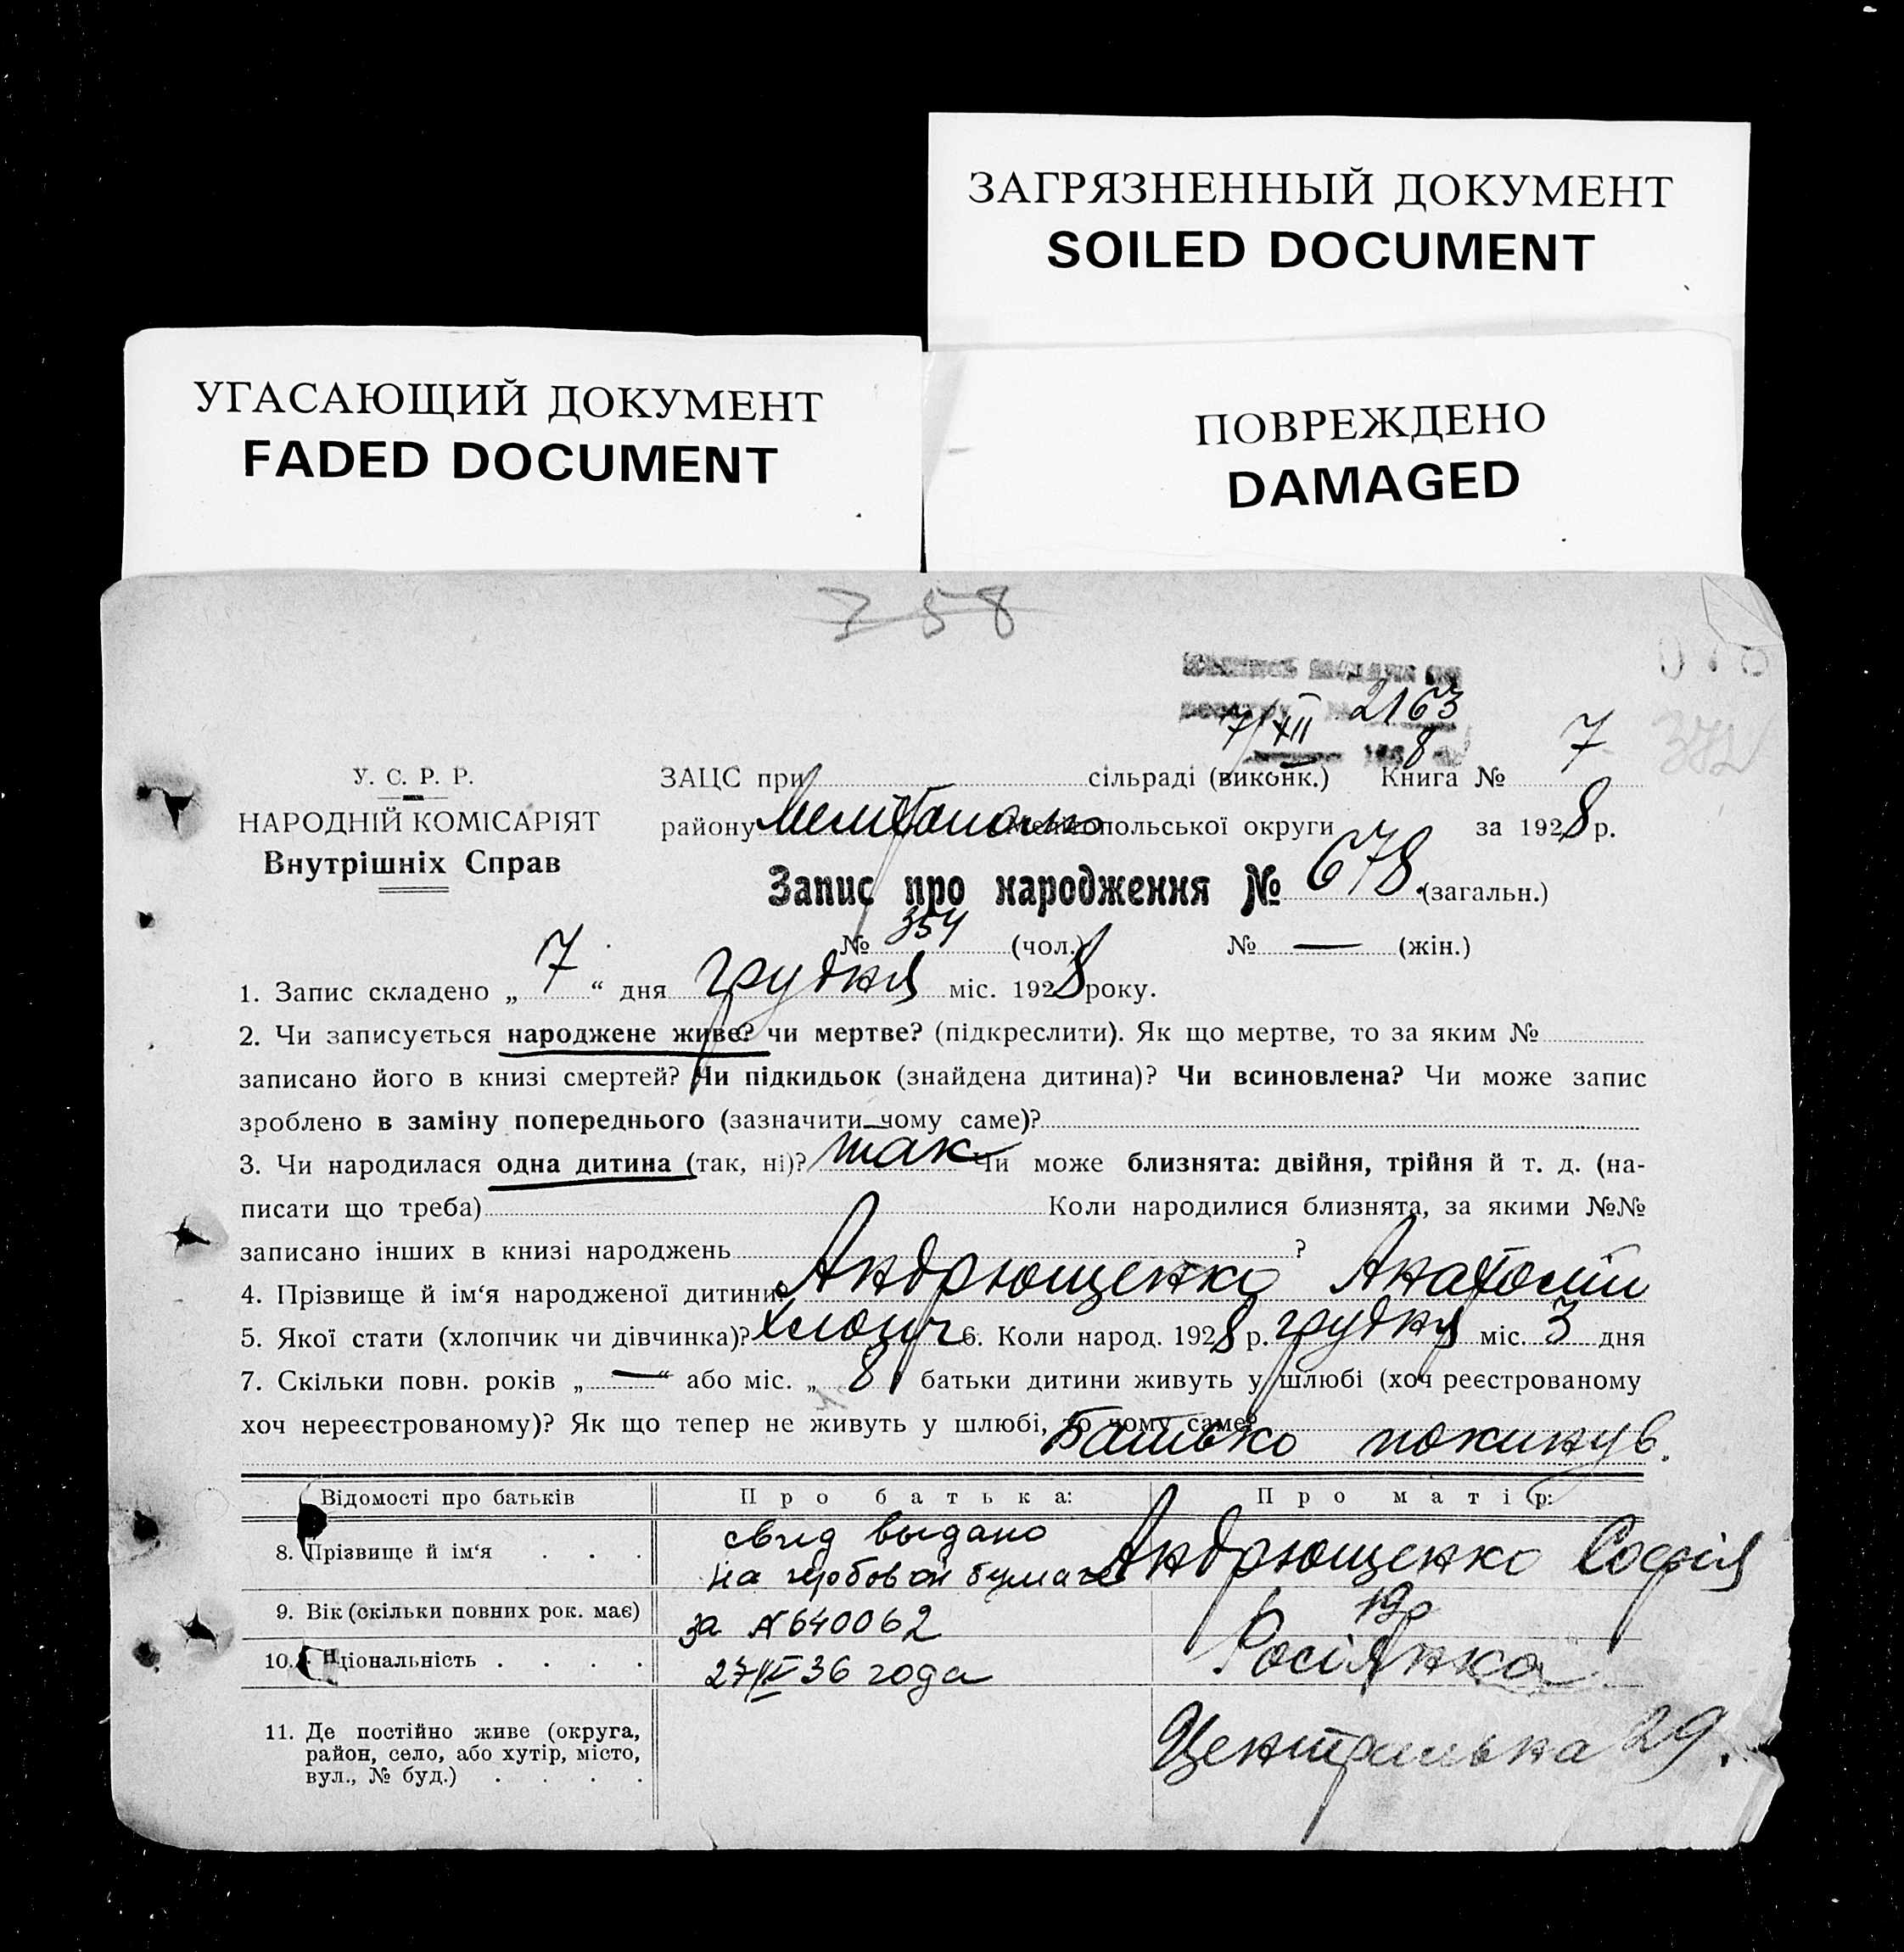 ЗАГРЯЗНЕННЫЙ ДОКУМЕНТ
SOILED DOCUMENT
УГАСАЮЩИЙ ДОКУМЕНТ
FADED DOCUMENT
ПОВРЕЖДЕНО
DAMAGED
758
2163
7/XII 8
372
У. С. Р. Р.
НАРОДНІЙ КОМІСАРІЯТ
Внутрішніх Справ
ЗАЦС при сільраді (виконк.) Книга № 7
району Мелітопольськ Мелітопольської округи за 1928 р.
Запис про народження № 678 (загальн.)
№ 354 (чол.) № — (жін.)
1. Запис складено „ 7 “ дня грудня міс. 1928 року.
2. Чи записується народжене живе? чи мертве? (підкреслити). Як що мертве, то за яким №
записано його в книзі смертей? Чи підкидьок (знайдена дитина)? Чи всиновлена? Чи може запис
зроблено в заміну попереднього (зазначити чому саме)?
3. Чи народилася одна дитина (так, ні)? так Чи може близнята: двійня, трійня й т. д. (на-
писати що треба) Коли народилися близнята, за якими №№
записано інших в книзі народжень ?
4. Прізвище й ім‘я народженої дитини? Андрющенко Анатолій
5. Якої стати (хлопчик чи дівчинка)? хлопч 6. Коли народ. 1928 р. грудня міс. 3 дня
7. Скільки повн. років „ — “ або міс. „ 8 “ батьки дитини живуть у шлюбі (хоч реєстрованому
хоч нереєстрованому)? Як що тепер не живуть у шлюбі, то чому саме?
Батько покинув.
Відомості про батьків Про батька: Про матір:
8. Прізвище й ім‘я . . . свид выдано Андрющенко Софія
на гербовой бумаге
9. Вік (скільки повних рок. має) за № 640062 19р
10. Національність . . . . 27/IV 36 года Росіянка
11. Де постійно живе (округа, Центральна 29.
район, село, або хутір, місто,
вул., № буд.) . . . .